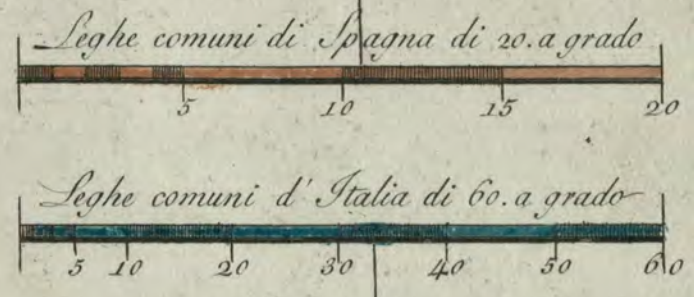 Leghe comuni di Spagna di 20. a grado
5 10 15 20
Leghe comuni d' Italia di 60. a grado
5 10 20 30 40 50 60